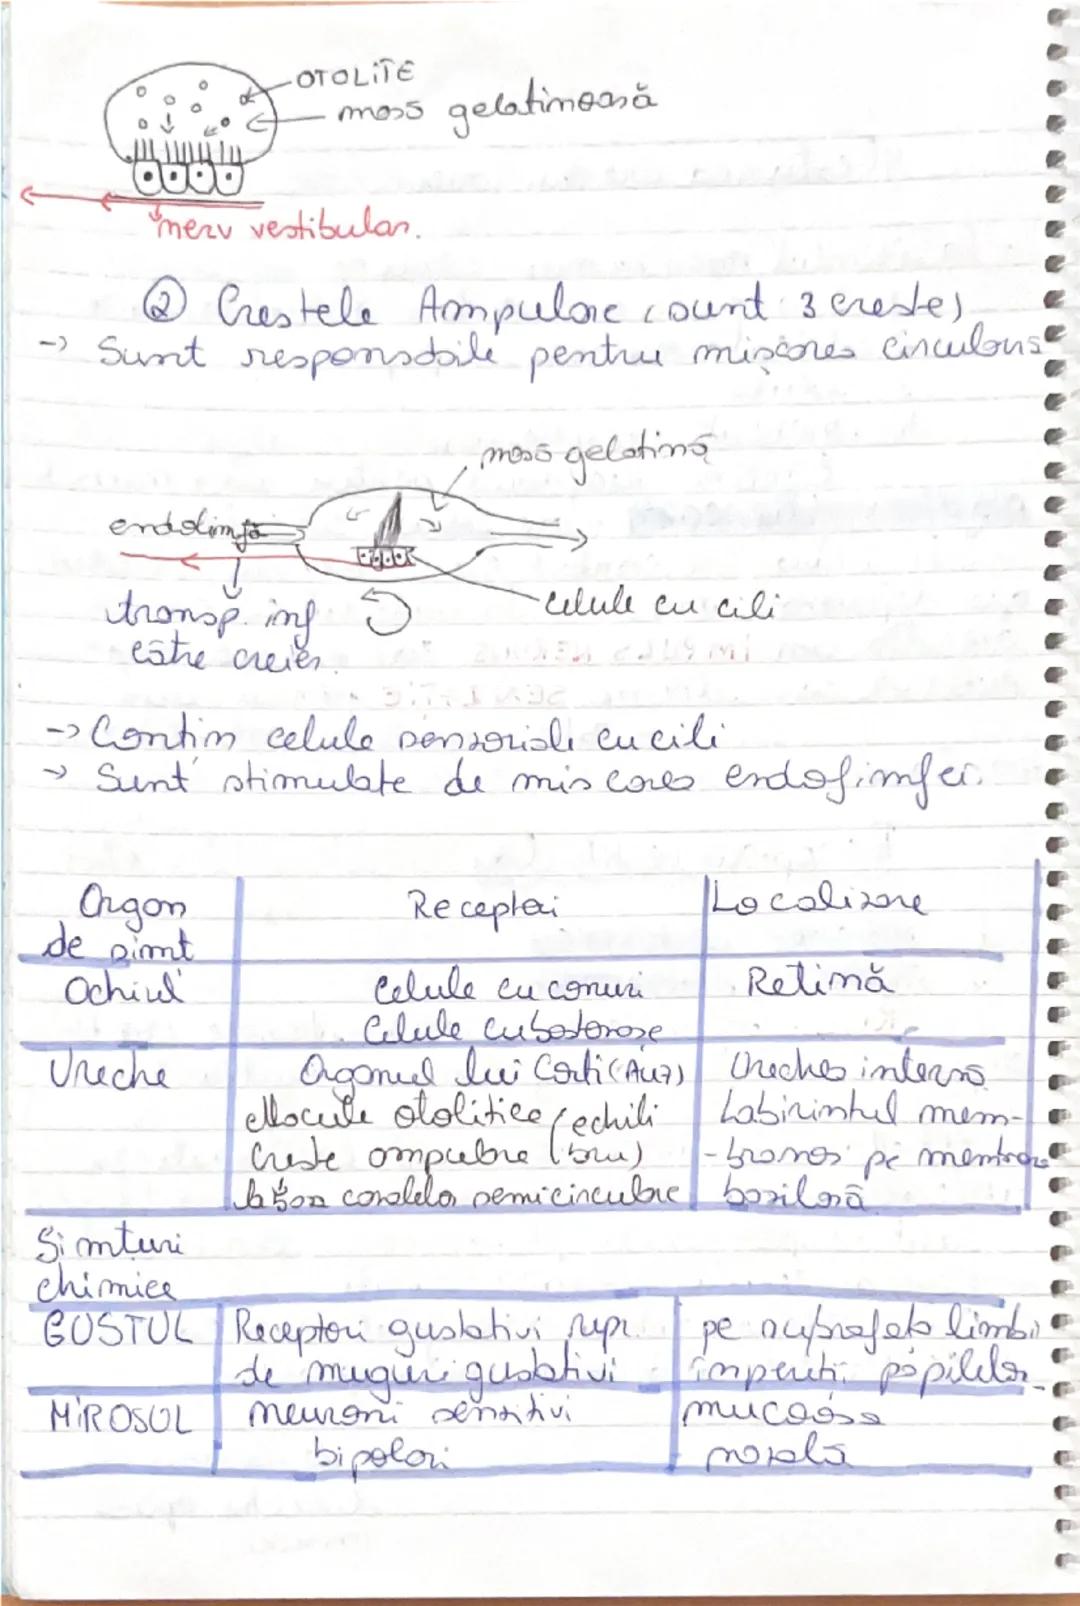 OTOLITE
masă gelatinoasă
nerv vestibular.
② Crestele Ampulare (sunt 3 creste)
-> Sunt responsabile pentru mișcarea circulară
masă gelatină
endolimfă
transp. inf
către creier
celule cu cili
-> Conțin celule senzoriale cu cili
-> Sunt stimulate de miscarea endolimfei.
Organ
de simt
Receptori
Localizare
Ochiul
Celule cu conuri
Celule cu bastonașe
Retină
Ureche
Organul lui Corti (Auz)
Macule otolitice (echili
Creste ampulare (bru)
la baza canalelor semicirculare
Urechea internă
Labirintul mem-
-branos pe membrana
bazilară
Simțuri
chimice
GUSTUL
Receptori gustativi repr.
de muguri gustativi
pe suprafata limbii
în pereții papilelor
MIROSUL
neuroni senzitivi
bipolari
mucoasa
nazală